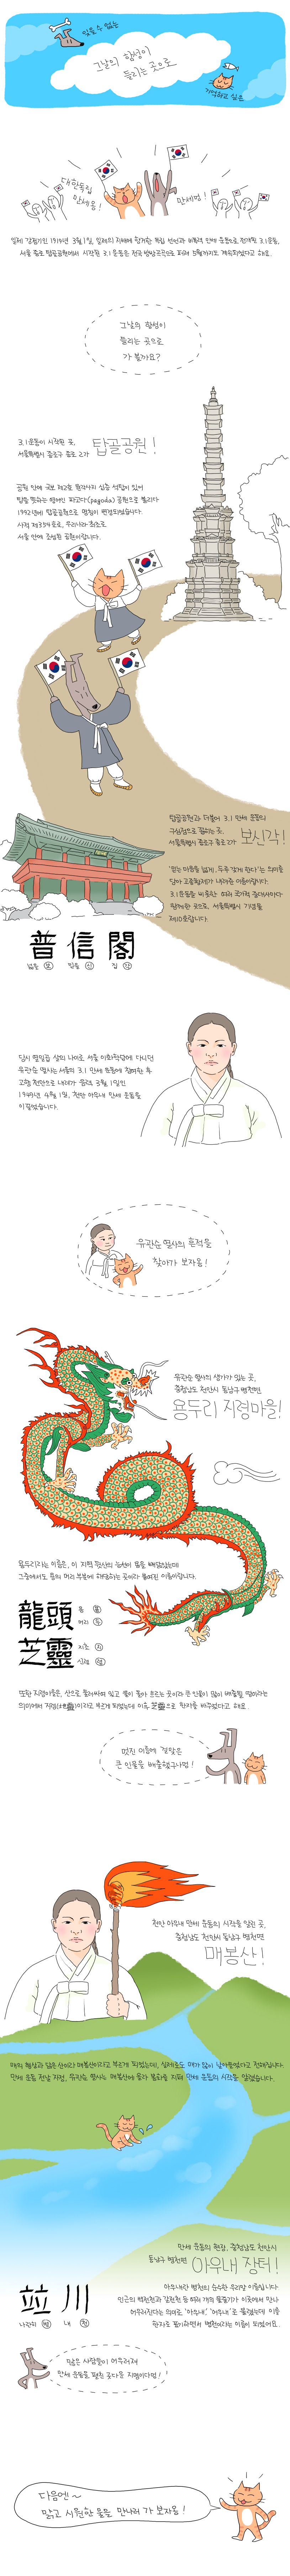 잊을 수 없는
그날의 함성이
들리는 곳으로
기억하고 싶은
대한독립
만세옹!
만세멍!
일제 강점기인 1919년 3월 1일, 일제의 지배에 항거한 독립 선언과 비폭력 만세 운동으로 전개된 3.1운동,
서울 종로 탑골공원에서 시작된 3.1운동은 전국 방방곡곡으로 퍼져 5월까지도 계속되었다고 해요.
그날의 함성이
들리는 곳으로
가 볼까요?
3.1운동이 시작된 곳,
서울특별시 종로구 종로 2가 탑골공원!
공원 안에 국보 제2호 원각사지 십층 석탑이 있어
탑을 뜻하는 영어인 파고다(pagoda) 공원으로 불리다
1992년에 탑골공원으로 명칭이 변경되었습니다.
사적 제354호로, 우리나라 최초로
서울 안에 조성된 공원이랍니다.
탑골공원과 더불어 3.1 만세 운동의
구심점으로 꼽히는 곳,
서울특별시 종로구 종로 2가 보신각!
'믿는 마음을 넓게, 두루 갖게 한다'는 의미를
담아 고종황제가 내려준 이름이랍니다.
3.1운동을 비롯한 여러 국가적 중대사마다
함께한 곳으로, 서울특별시 기념물
제10호랍니다.
普信閣
넓을 보 믿을 신 집 각
당시 열일곱 살의 나이로, 서울 이화학당에 다니던
유관순 열사는 서울의 3.1 만세 운동에 참여한 후
고향 천안으로 내려가 음력 3월 1일인
1919년 4월 1일, 천안 아우내 만세 운동을
이끌었습니다.
유관순 열사의 흔적을
찾아가 보자옹!
유관순 열사의 생가가 있는 곳,
충청남도 천안시 동남구 병천면
용두리 지령마을!
용두리라는 이름은, 이 지역 뒷산의 능선이 용을 빼닮았는데
그중에서도 용의 머리 부분에 위치하는 곳이라 붙여진 이름이랍니다.
龍頭 용 룡
머리 두
芝靈 지초 지
신령 령
또한 지령마을은, 산으로 둘러싸여 있고 물이 돌아 흐르는 곳이라 큰 인물이 많이 배출될 땅이라는
의미에서 지령(地靈)이라고 부르게 되었는데 이후 芝靈으로 한자를 바꾸었다고 해요.
멋진 이름에 걸맞은
큰 인물을 배출했구나멍!
천안 아우내 만세 운동의 시작을 알린 곳,
충청남도 천안시 동남구 병천면
매봉산!
매의 형상과 닮은 산이라 매봉산이라고 부르게 되었는데, 실제로도 매가 많이 날아들었다고 전해집니다.
만세 운동 전날 자정, 유관순 열사는 매봉산에 올라 봉화를 지펴 만세 운동의 시작을 알렸습니다.
만세 운동의 현장, 충청남도 천안시
동남구 병천면 아우내 장터!
아우내란 병천의 순수한 우리말 이름입니다.
인근의 백전천과 갈전천 등 여러 개의 물줄기가 이곳에서 만나
어우러진다는 의미로 '아우내', '어우내'로 불렸는데 이를
한자로 표기하면서 병천이라는 이름이 되었어요.
竝川
나란히 병 내 천
많은 사람들이 어우러져
만세 운동을 펼친 곳다운 지명이다멍!
다음엔~
맑고 시원한 물을 만나러 가 보자옹!